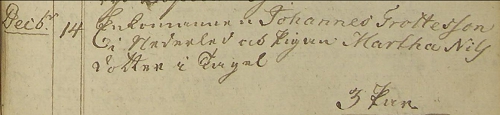 Decbr 14 Enkomannen Johannes Frottesson
i Nederled och Pigan Martha Nils
dotter i Tagel
3 Par